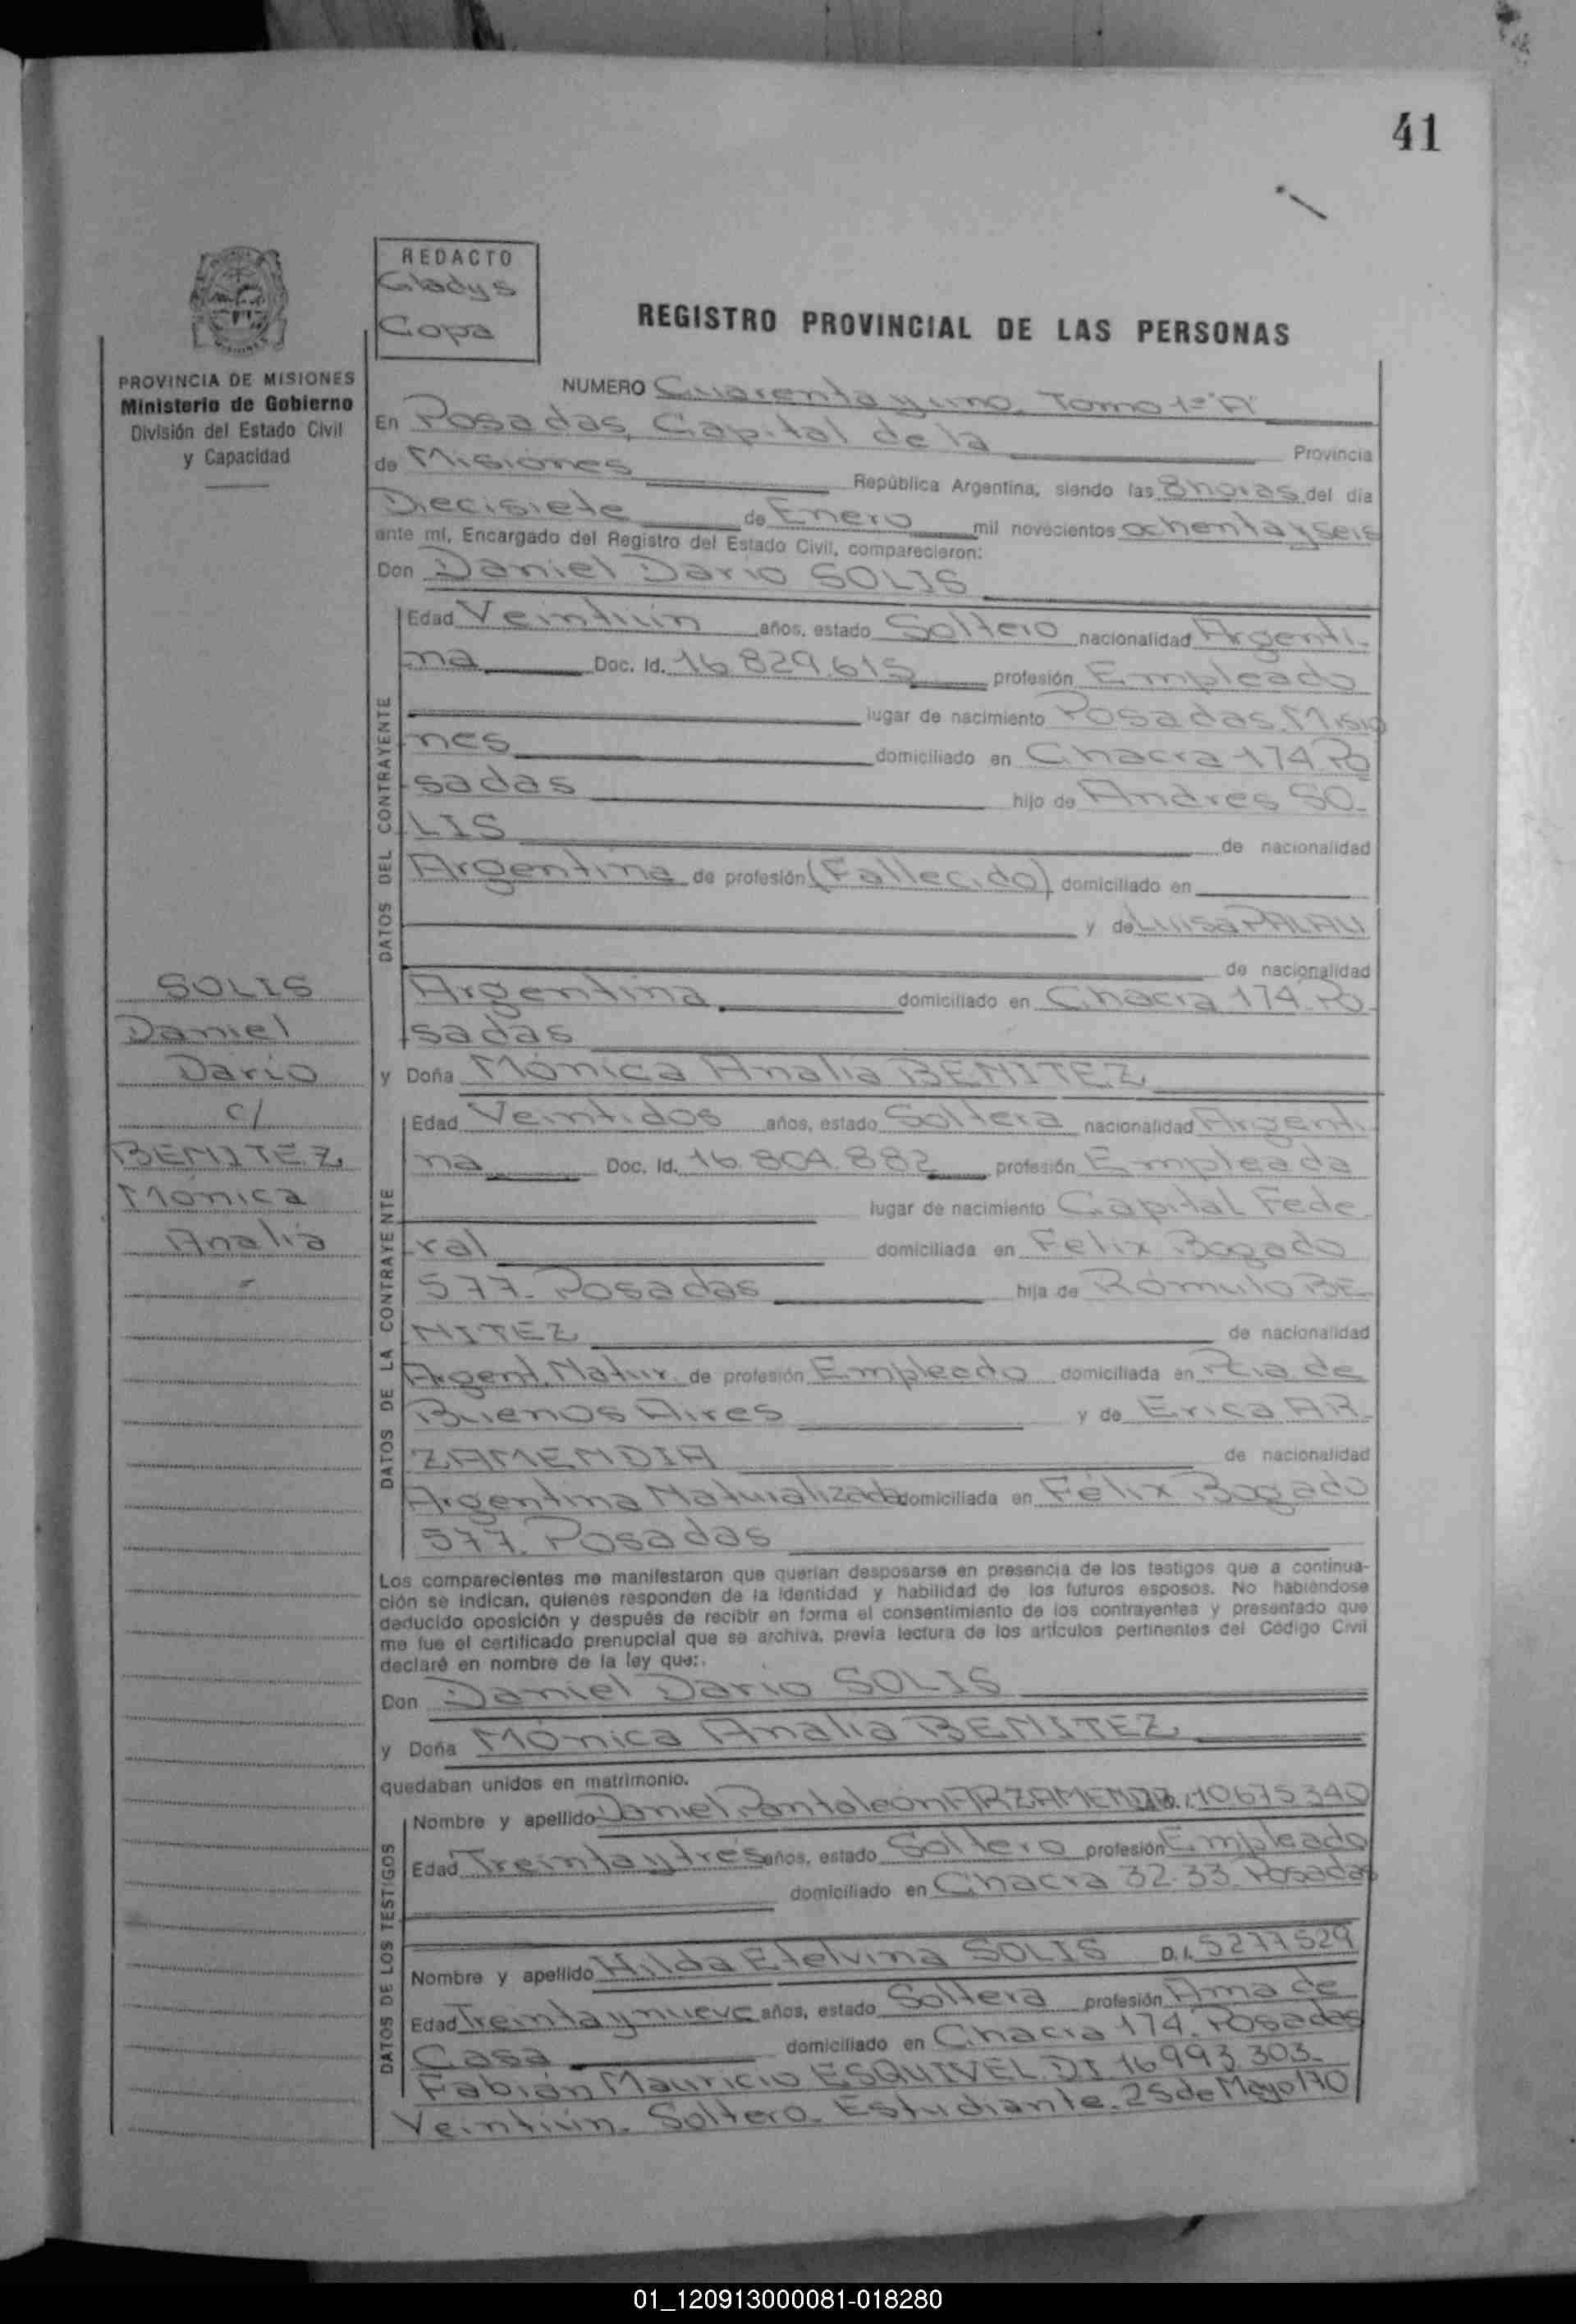 41
REDACTO
Gladys
Copa
REGISTRO PROVINCIAL DE LAS PERSONAS
PROVINCIA DE MISIONES
Ministerio de Gobierno
División del Estado Civil
y Capacidad
NUMERO Cuarenta y uno. Tomo 1º "A"
En Posadas, Capital de la Provincia
de Misiones República Argentina, siendo las 8 horas del día
Diecisiete de Enero mil novecientos ochenta y seis
ante mí, Encargado del Registro del Estado Civil, comparecieron:
Don Daniel Dario SOLIS
Edad Veintiún años, estado Soltero nacionalidad Argenti-
na Doc. Id. 16.829.615 profesión Empleado
lugar de nacimiento Posadas. Misio
nes domiciliado en Chacra 174 Po
sadas hijo de Andres SO-
LIS de nacionalidad
Argentina de profesión (Fallecido) domiciliado en
y de Luisa PALAU
de nacionalidad
Argentina domiciliado en Chacra 174. Po-
sadas
y Doña Mónica Analía BENITEZ
Edad Veintidos años, estado Soltera nacionalidad Argenti
na Doc. Id. 16.804.882 profesión Empleada
lugar de nacimiento Capital Fede
ral domiciliada en Felix Bogado
577. Posadas hija de Rómulo BE
NITEZ de nacionalidad
Argent. Natur. de profesión Empleado domiciliada en Pcia de
Buenos Aires y de Erica AR
ZAMENDIA de nacionalidad
Argentina Naturalizada domiciliada en Félix Bogado
577. Posadas
DATOS DEL CONTRAYENTE
DATOS DE LA CONTRAYENTE
SOLIS
Daniel
Dario
c/
BENITEZ
Mónica
Analía
Los comparecientes me manifestaron que querían desposarse en presencia de los testigos que a continua-
ción se indican, quienes responden de la identidad y habilidad de los futuros esposos. No habiéndose
deducido oposición y después de recibir en forma el consentimiento de los contrayentes y presentado que
me fue el certificado prenupcial que se archiva, previa lectura de los artículos pertinentes del Código Civil
declaré en nombre de la ley que:.
Don Daniel Dario SOLIS
y Doña Mónica Analia BENITEZ
quedaban unidos en matrimonio.
Nombre y apellido Daniel Pantaleón ARZAMENDIA 10675340
Edad Treinta y tres años, estado Soltero profesión Empleado
domiciliado en Chacra 32-33. Posadas
Nombre y apellido Hilda Etelvina SOLIS D.I. 5277529
Edad Treinta y nueve años, estado Soltera profesión Ama de
Casa domiciliado en Chacra 174. Posadas
Fabián Mauricio ESQUIVEL. DI 16993303-
Veintiún. Soltero. Estudiante. 25 de Mayo 170
DATOS DE LOS TESTIGOS
01_120913000081-018280